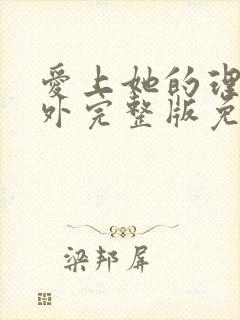 愛上她的理
外完整版免
梁邦屏